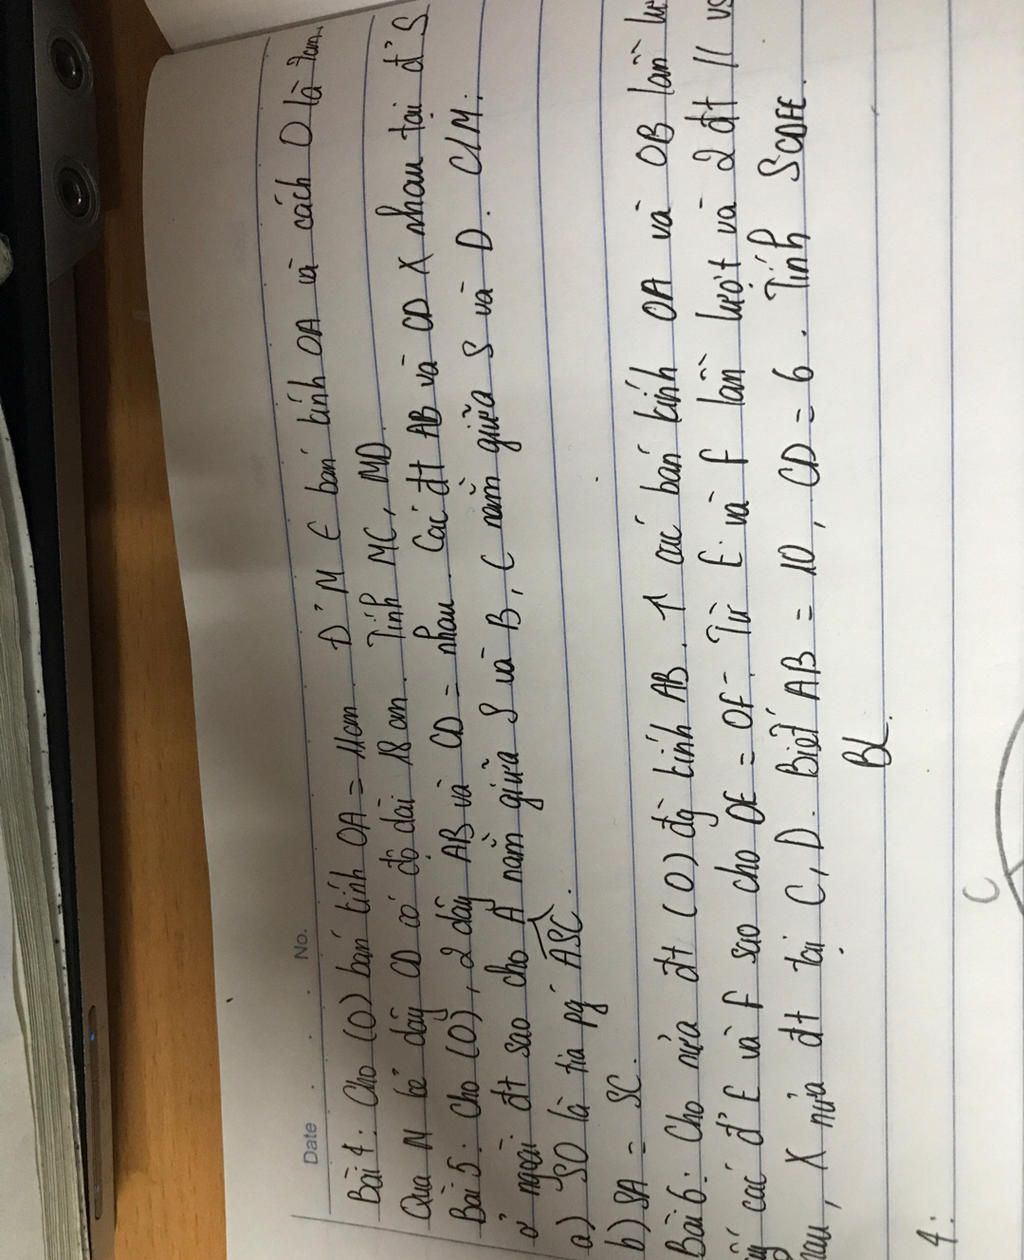 Date No.
Bài 4: Cho (O) bán kính OA = 11cm. Đ' M ∈ bán kính OA và cách O là 7cm.
Qua M kẻ dây CD có độ dài 18 cm. Tính MC, MD.
Bài 5: Cho (O), 2 dây AB và CD = nhau. Các đt AB và CD X nhau tại đ' S
ở ngoài đt sao cho A nằm giữa S và B, C nằm giữa S và D. C/M:
a) SO là tia pg ASC.
b) SA = SC.
Bài 6: Cho nửa đt (O) đg kính AB. ↑ các bán kính OA và OB lần
các đ' E và F sao cho OE = OF. Từ E và F lần lượt và 2 đt //
X nửa đt tại C, D. Biết AB = 10, CD = 6. Tính SCDFE.
BL.
4:
C